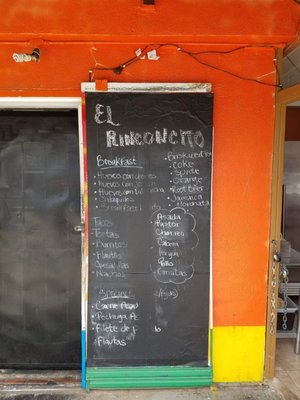 EL
RINCONCITO
Breakfast
Huevos con chorizo
Huevos con
Huevos con
Chilaquiles
Breakfast
Tacos
Tortas
Burritos
Flautas
Quesadillas
Nachos
Special
Carne Asada
Pechuga
Filete de
Flautas
Coke
Sprite
Orange
Root Beer
Jamaica
Horchata
Asada
Pastor
Chorizo
Cabeza
Lengua
Pollo
Carnitas